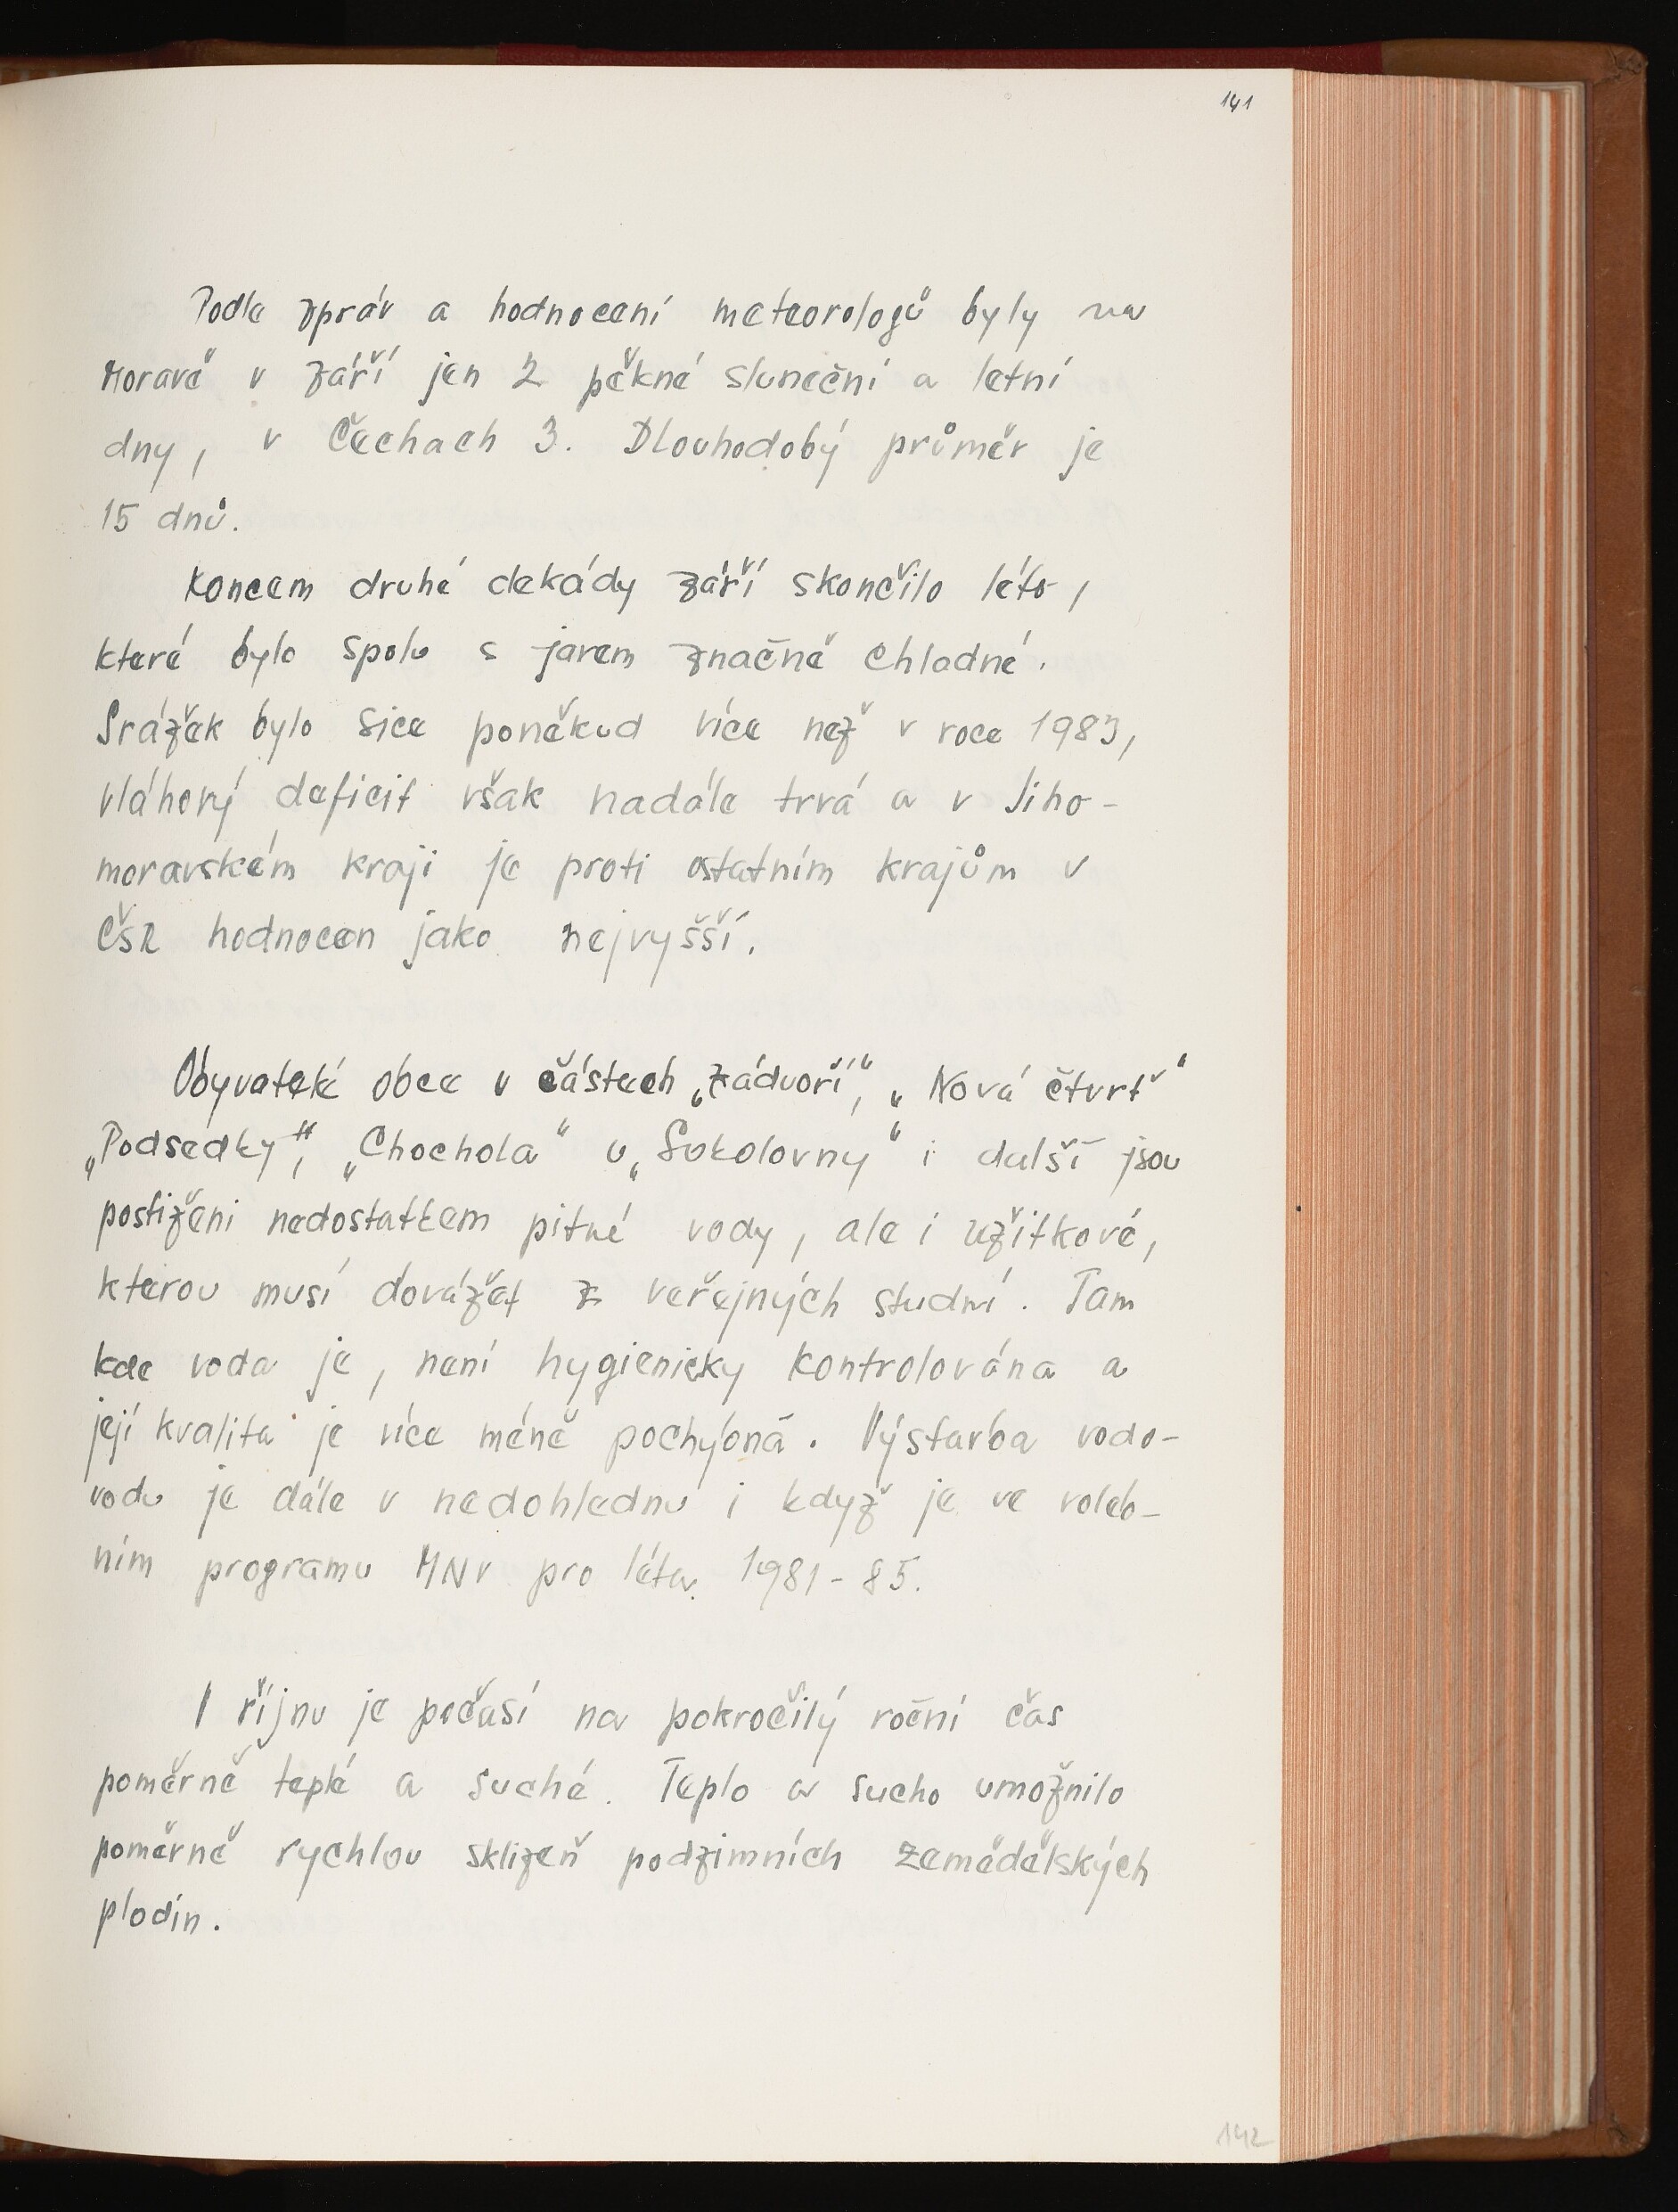 141
Podle zpráv a hodnocení meteorologů byly na
Moravě v září jen 2 pěkné sluneční a letní
dny, v Čechach 3. Dlouhodobý průměr je
15 dnů.
Koncem druhé dekády září skončilo léto,
které bylo spolu s jarem značně chladné.
Srážek bylo sice poněkud více než v roce 1983,
vláhový deficit však nadále trvá a v Jiho-
moravském kraji je proti ostatním krajům v
ČSR hodnocen jako nejvyšší.
Obyvatelé obce v částech „Zádvoří", „Nová čtvrť"
„Podsedky", „Chochola" u „Sokolovny" i další jsou
postiženi nedostatkem pitné vody, ale i užitkové,
kterou musí dovážet z veřejných studní. Tam
kde voda je, není hygienicky kontrolována a
její kvalita je více méně pochybná. Výstavba vodo-
vodu je dále v nedohlednu i když je ve voleb-
ním programu MNV pro léta 1981-85.
V říjnu je počasí na pokročilý roční čas
poměrně teplé a suché. Teplo a sucho umožnilo
poměrně rychlou sklizeň podzimních zemědělských
plodin.
142